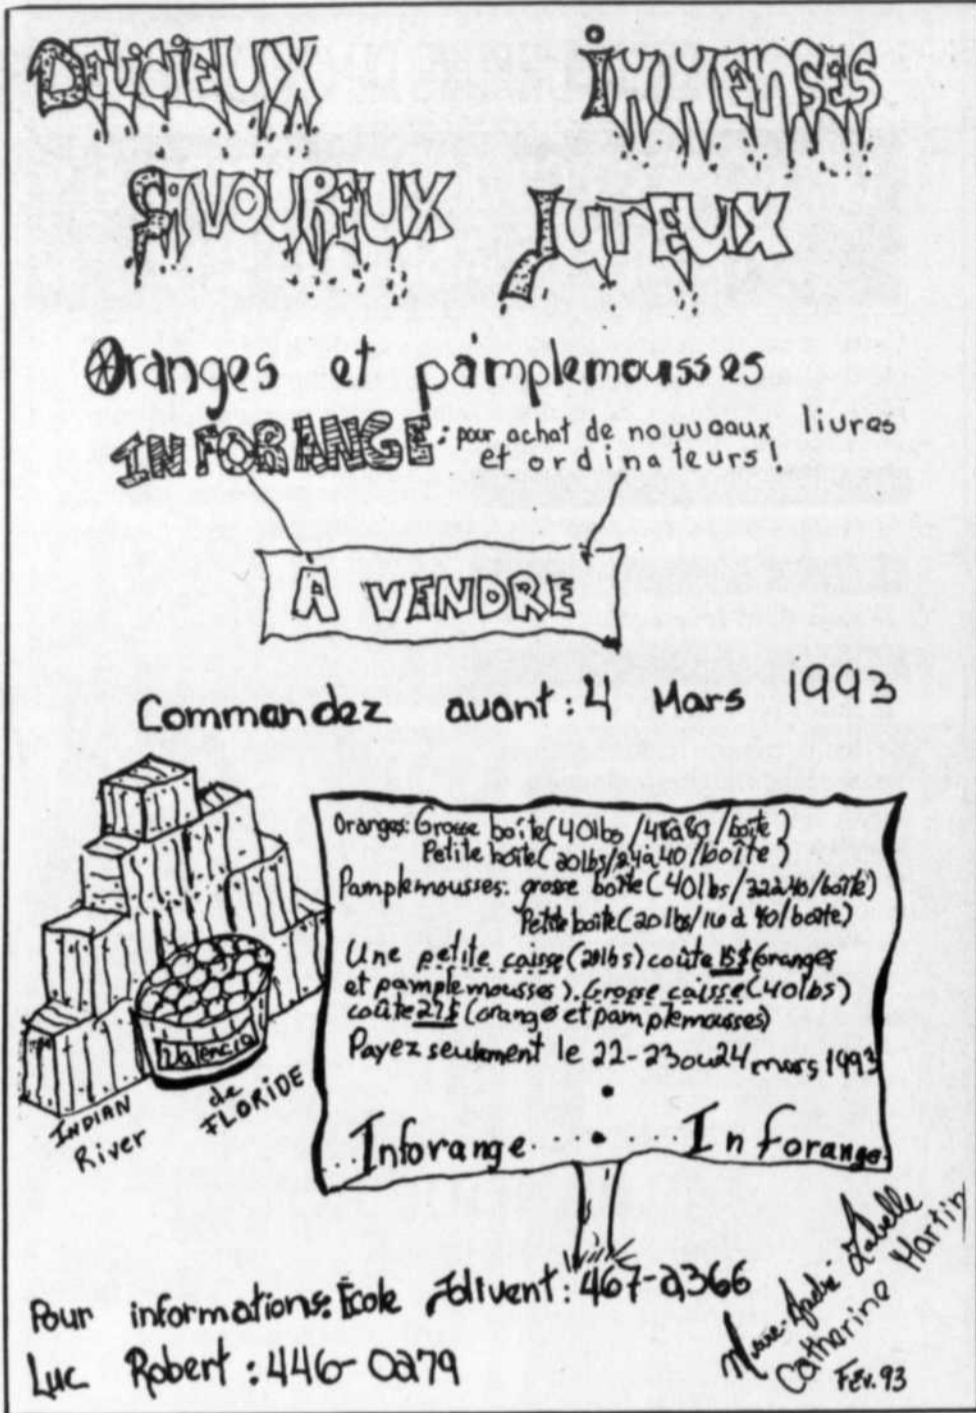 DELICIEUX
IMMENSES
SAVOUREUX
JUTEUX
Oranges et pamplemousses
INFORANGE: pour achat de nouveaux livres
et ordinateurs!
A VENDRE
Commandez avant: 4 Mars 1993
Oranges: Grosse boîte (40lbs/48à80/boîte)
Petite boîte (20lbs/24à40/boîte)
Pamplemousses: grosse boîte (40lbs/32à40/boîte)
Petite boîte (20lbs/16 à 40/boîte)
Une petite caisse (20lbs) coûte 15$ (oranges
et pamplemousses). Grosse caisse (40lbs)
coûte 27$ (orange et pamplemousses)
Payez seulement le 22-23 ou 24 mars 1993
Inforange..... Inforange.
Valencia
de
FLORIDE
INDIAN
River
Pour informations: École Jolivent: 467-2366
Luc Robert: 446-0279
Marie-André Labelle
Catherine Martin
Fév. 93